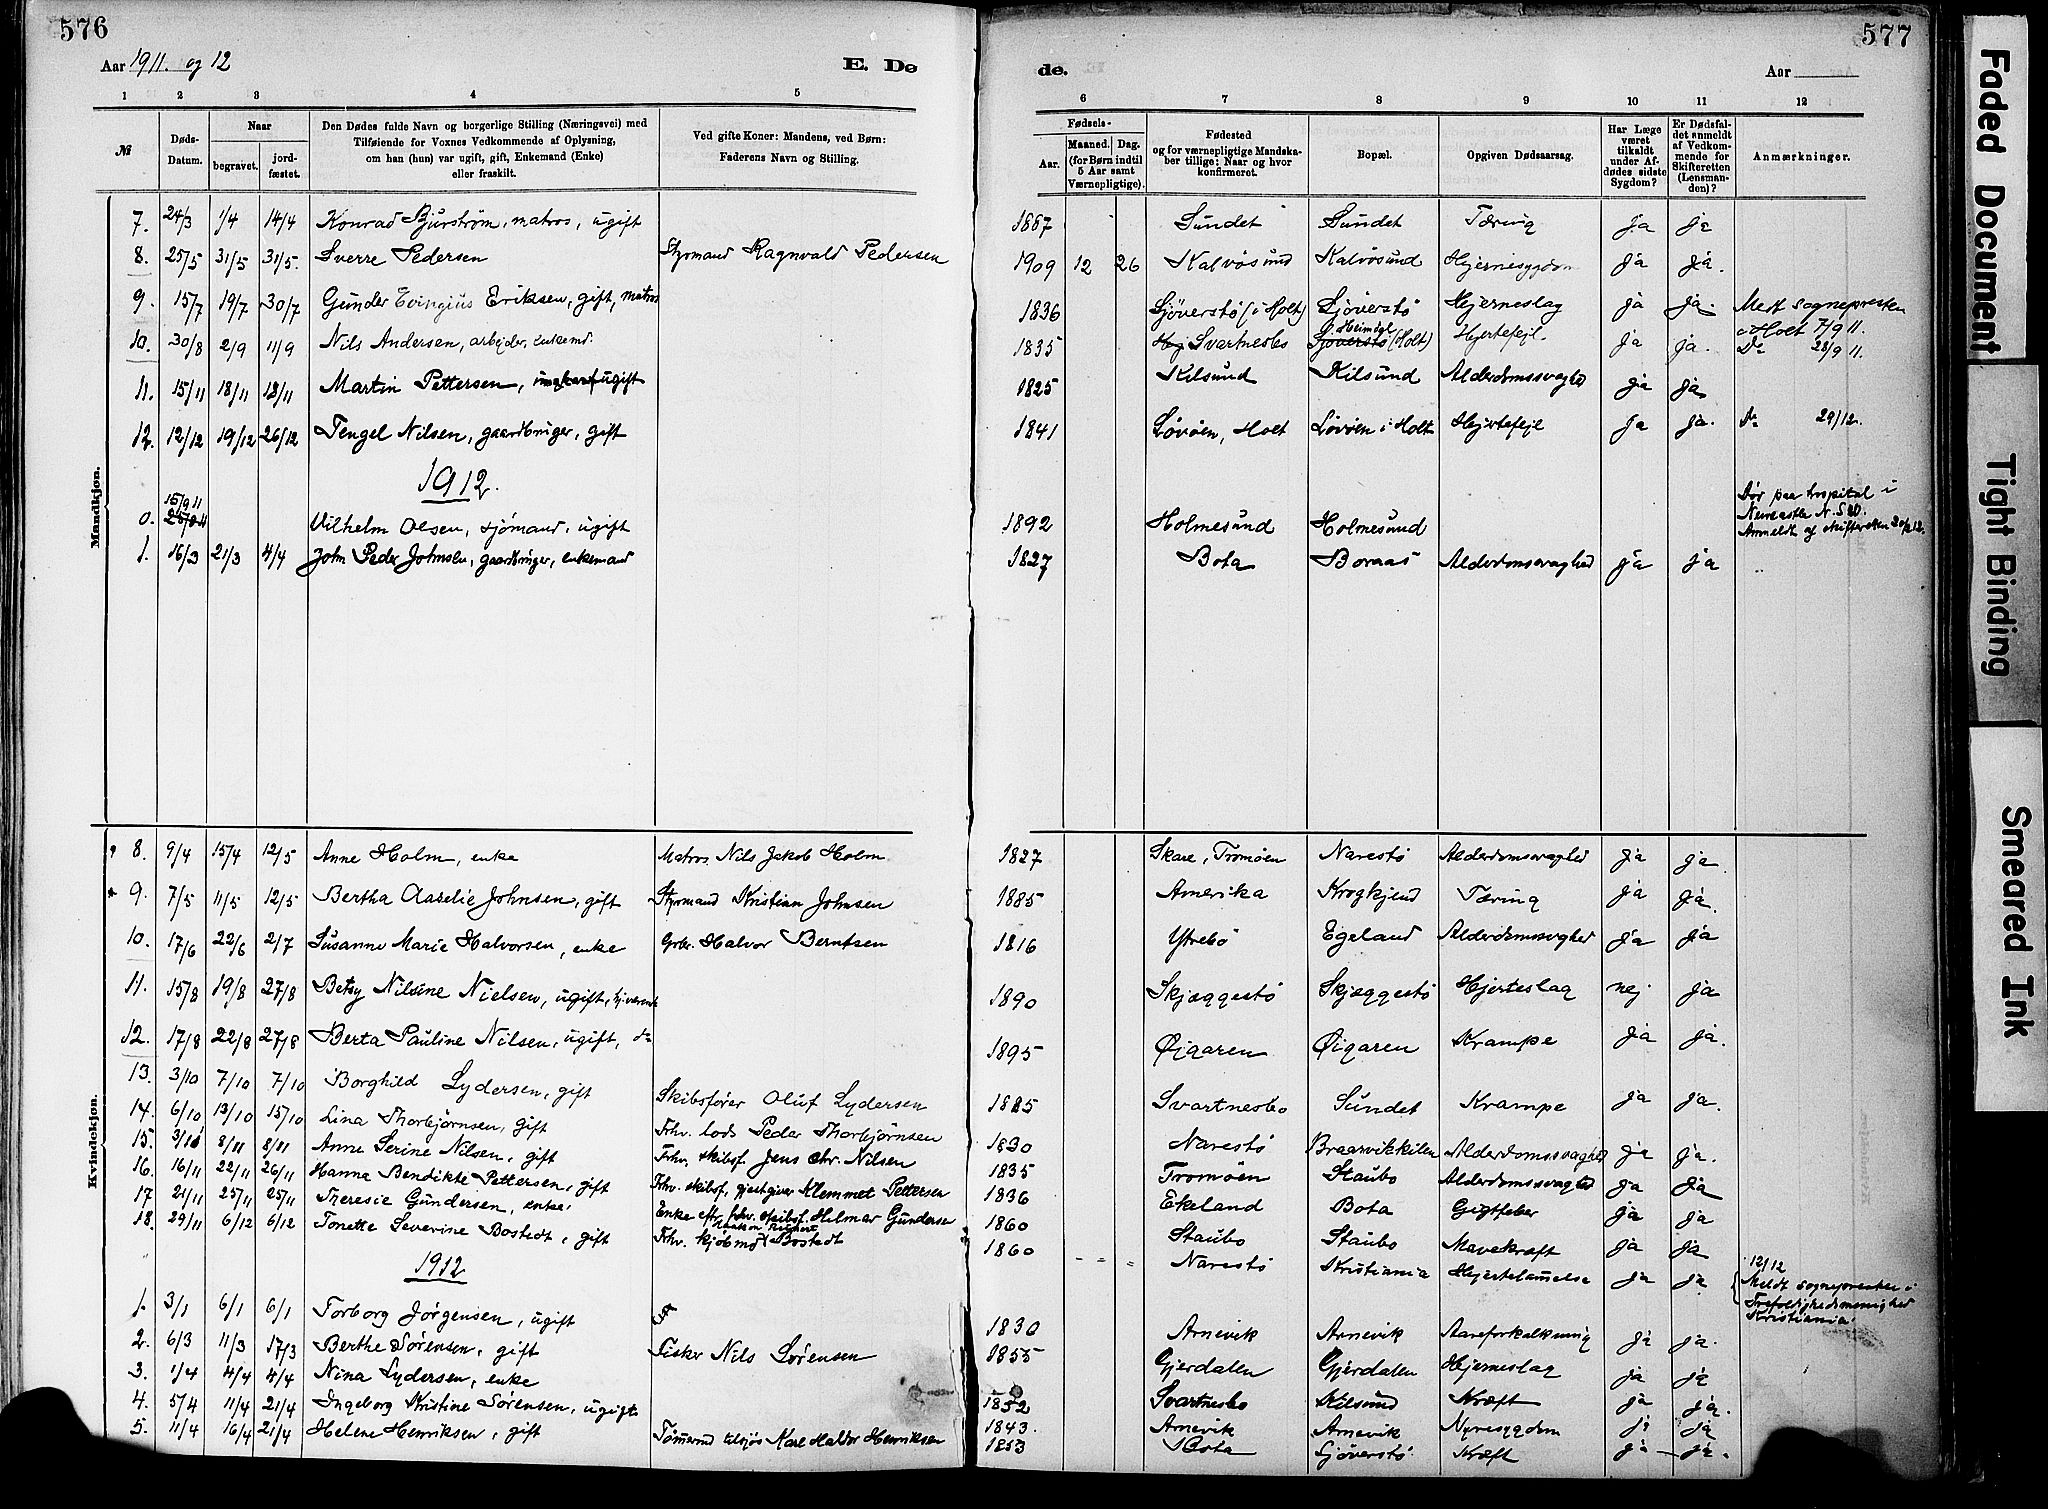 576
Aar 1911. og 12
E. De
1 2 3 4 5
№
Døds-Datum.
Naar
begravet.
jord-fæstet.
Den Dødes fulde Navn og borgerlige Stilling (Næringsvei) med
Tilføiende for Voxnes Vedkommende af Oplysning,
om han (hun) var ugift, gift, Enkemand (Enke)
eller fraskilt.
Ved gifte Koner: Mandens, ved Børn:
Faderens Navn og Stilling.
Mandkjøn.
7. 24/3 1/4 14/4 Konrad Bjurstrøm, matros, ugift
8. 25/5 31/5 31/5. Sverre Pedersen Styrmand Ragnvald Pedersen
9. 15/7 19/7 30/7 Gunder Eriksen, gift, matros
10. 30/8 2/9 11/9 Nils Andersen, arbejder, enkemd.
11. 15/11 18/11 18/11 Martin Pettersen, ugift
12. 12/12 19/12 26/12 Tengel Nilsen, gaardbruger, gift
1912.
15/9 11
0. Vilhelm Olsen, sjömand, ugift
1. 16/3 21/3 4/4 John Peder Johnsen, gaardbruger, enkemand
Kvindekjøn.
8. 9/4 15/4 12/5 Anne Holm, enke Matros. Nils Jakob Holm
9. 7/5 11/5 12/5 Bertha Aaselie Johnsen, gift Styrmand Kristian Johnsen
10. 17/6 22/6 2/7 Susanne Marie Halvorsen, enke Grbr. Halvor Berntsen
11. 15/8 19/8 27/8 Betsy Nilsine Nielsen, ugift,
12. 17/8 22/8 27/8 Berta Pauline Nilsen, ugift, do
13. 3/10 7/10 7/10 Borghild Lydersen, gift Skibsfører Oluf Lydersen
14. 6/10 13/10 15/10 Lina Thorbjørnsen, gift Frhv. lods Peder Thorbjørnsen
15. 3/11 8/11 8/11 Anne Serine Nilsen, gift Frhv. skibsf. Jens Chr. Nilsen
16. 16/11 22/11 26/11 Hanna Bendikte Pettersen, gift Frhv. skibsf, gjestgiver Klemmet Pettersen
17 21/11 25/11 25/11 Theresie Gundersen, enke. Enke eftr. frhv. skibsf. Helmar Gundersen
18. 29/11 6/12 6/12 Tonette Severine Bostedt, gift Frhv. kjøbmd Bostedt
1912
1. 3/1 6/1 6/1 Torborg Jörgensen, ugift
2. 6/3 11/3 17/3 Berthe Sørensen, gift Fisker Nils Sørensen
3. 1/4 4/4 4/4 Nina Lydersen, enke
4. 5/4 11/4 21/4 Ingeborg Kristine Sørensen, ugift
5. 11/4 16/4 21/4 Helene Henriksen, gift Tømmermd tilsjøs Karl Haldor Henriksen
577
de.
Aar
6 7 8 9 10 11 12
Fødsels-
Aar.
Maaned. Dag.
(for Børn indtil
5 Aar samt
Værnepligtige).
Fødested
og for værnepligtige Mandska-
ber tillige: Naar og hvor
konfirmeret.
Bopæl.
Opgiven Dødsaarsag.
Har Læge
været
tilkaldt
under Af-
dødes sidste
Sygdom?
Er Dødsfal-
det anmeldt
af Vedkom-
mende for
Skifteretten
(Lensman-
den)?
Anmærkninger.
1887 Sundet Sundet Tæring ja ja
1909 12 26 Kalvösund Kalvösund Hjernesygdom ja ja.
1836 Sjöverstø (i Holt) Sjöverstø Hjerneslag ja ja. Meldt sognepresten
i Holt 7/9 11.
1835 Svartnesbo Sjöverstö (Holt) Hjertefejl. ja ja. Do 28/9 11.
1825 Kilsund Kilsund Alderdomssvaghed ja ja
1841 Lövöen, Holt Lövöen i Holt Hjertefejl ja ja. do 29/12.
1892 Holmesund Holmesund Dör paa hospital i
Newcastle N.S.W.
Anmeldt af skifteretten 20/2 12.
1827 Bota Boraas Alderdomssvaghed ja ja
1827 Skare, Tromöen Narestö Alderdomssvaghed ja ja.
1885 Amerika Krogkjend Tæring ja ja.
1816 Ytrebö Egeland Alderdomssvaghed ja ja
1890 Skjæggestö Skjæggestö Hjerteslag nej ja
1895 Øigaren Øigaren Krampe ja ja.
1885 Svartnesbo Sundet Krampe ja ja.
1830 Narestö Braarvikkilen Alderdomssvaghed ja ja.
1835 Tromöen Staubo Alderdomssvaghed ja ja
1836 Ekeland Bota Gigtfeber ja ja
1860 Staubo Staubo Mavekræft ja ja
1860 Narestö Kristiania Hjertelammelse ja ja 12/12
Meldt sognepresten i
Trefoldighedsmenighed
Kristiania.
1830 Arnevik Arnevik Aareforkalkning ja ja.
1855 Gjerdalen Gjerdalen Hjerneslag ja ja
1852 Svartnesbo Kilsund Kræft ja ja.
1843. Arnevik Arnevik Nyresygdom ja ja
1853 Bota Sjöverstö Kræft ja ja.
Faded Document
Tight Binding
Smeared Ink